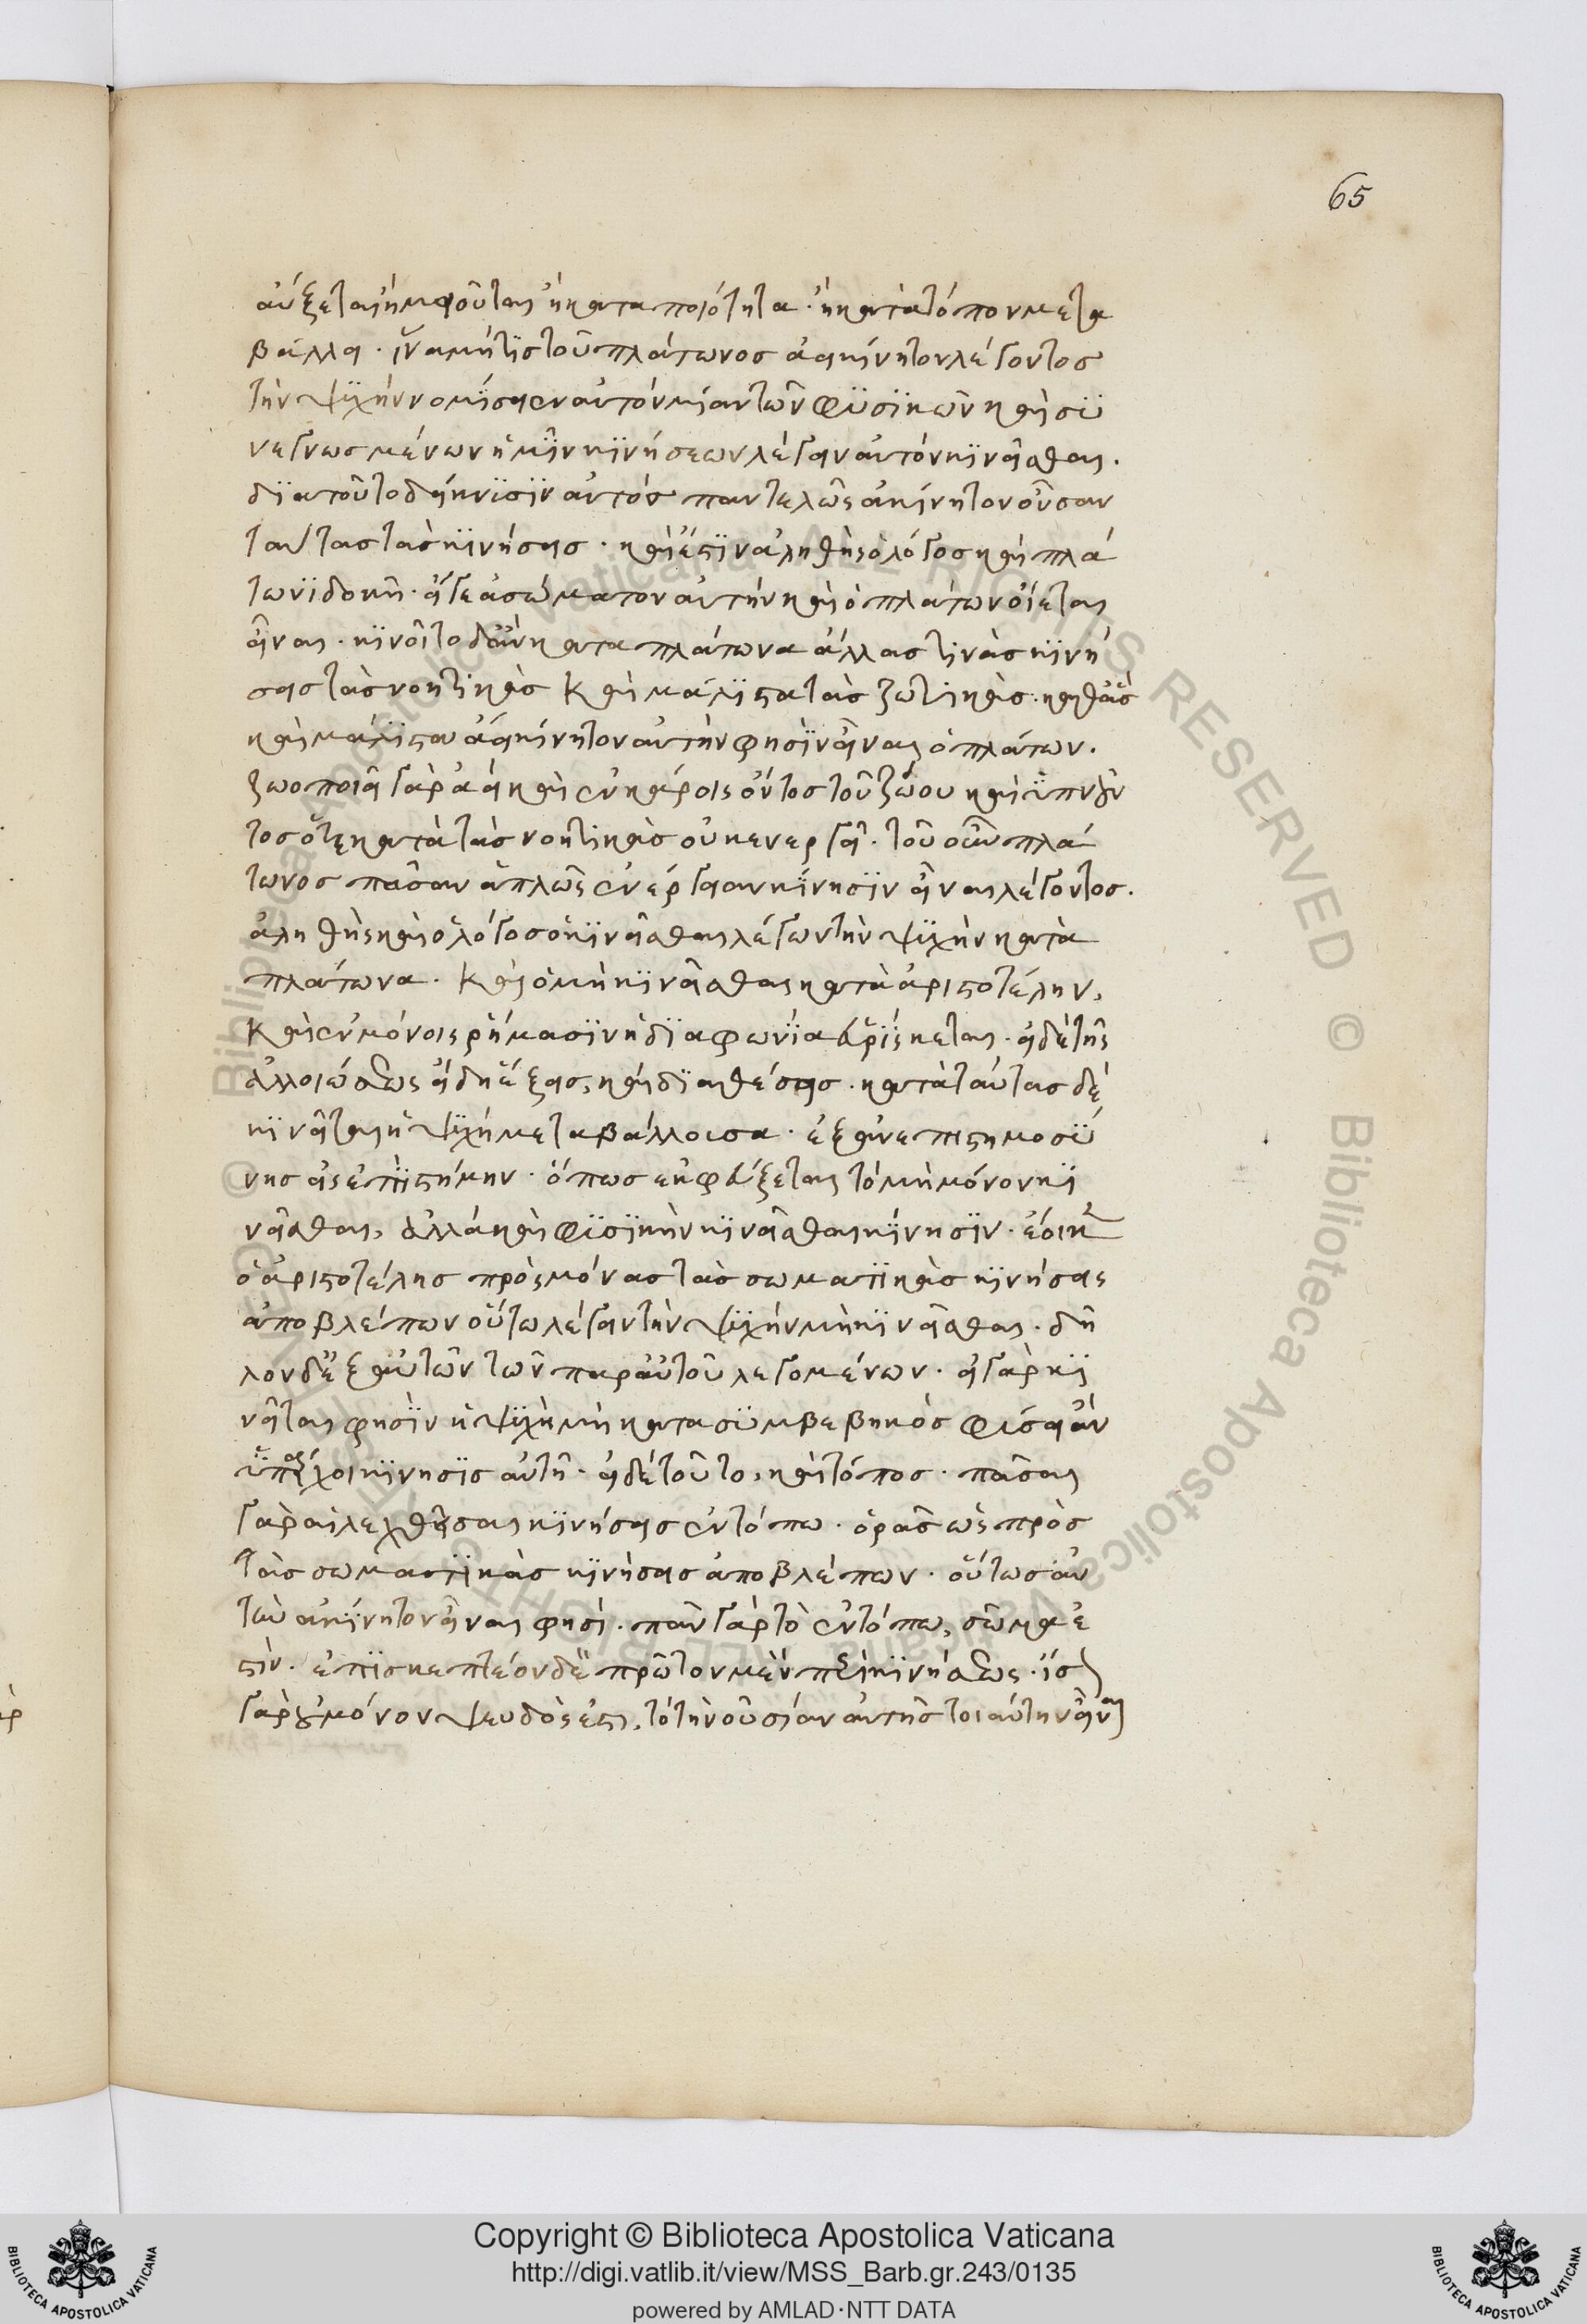 65
αὔξεται ἢ μειοῦται ἢ κατα ποιότητα· ἢ κατὰ τόπον μετα
βάλλει· ἵνα μήτις τοῦ πλάτωνος ἀεικίνητον λέγοντος
τὴν ψυχὴν νομίσειεν αὐτὸν μίαν τῶν φυσικῶν καὶ συ
νεγνωσμένων ἡμῖν κινήσεων λέγειν αὐτὸν κινεῖσθαι.
διατοῦτο δείκνυσιν αὐτὸς παντελῶς ἀκίνητον οὖσαν
ταύτας τὰς κινήσεις· καὶ ἔστιν ἀληθὴς ὁ λόγος καὶ πλά
τωνι δοκεῖ· εἴγε ἀσώματον αὐτὴν καὶ ὁ πλάτων οἴεται
εἶναι· κινοῖτο δ' ἂν κατα πλάτωνα ἄλλας τινὰς κινή
σεις τὰς νοητικὰς καὶ μάλιστα τὰς ζωτικὰς· καθ' ἃς
καὶ μάλιστα ἀεικίνητον αὐτὴν φησὶν εἶναι ὁ πλάτων.
ζωοποιεῖ γὰρ ἀεὶ καὶ ἐν κάροις ὄντος τοῦ ζώου καὶ ὑπνοῦν
τος ὅτε κατὰ τὰς νοητικὰς οὐκ ενεργεῖ· τοῦ οὖν πλά
τωνος πᾶσαν ἁπλῶς ἐνέργειαν κίνησιν εἶναι λέγοντος.
ἀληθὴς καὶ ὁ λόγος ὁ κινεῖσθαι λέγων τὴν ψυχὴν κατὰ
πλάτωνα· καὶ ὁ μὴ κινεῖσθαι κατὰ ἀριστοτέλην,
καὶ ἐν μόνοις ῥήμασιν ἡ διαφωνία εὑρίσκεται· εἰ δὲ τῆς
ἀλλοιώσεως εἴδη ἕξεις, καὶ διαθέσεις· κατὰ ταύτας δὲ
κινεῖται ἡ ψυχὴ μεταβάλλουσα· ἐξ ἀνεπιστημοσύ
νης εἰς επιστήμην· ὅπως εκφεύξεται τὸ μὴ μόνον κι
νεῖσθαι, ἀλλὰ καὶ φυσικὴν κινεῖσθαι κίνησιν· ἔοικεν
ὁ ἀριστοτέλης πρὸς μόνας τὰς σωματικὰς κινήσεις
ἀποβλέπων οὕτω λέγειν τὴν ψυχὴν μὴ κινεῖσθαι· δῆ
λον δὲ ἐξ αὐτῶν τῶν παρ' αὐτοῦ λεγομένων· εἰ γὰρ κι
νεῖται φησὶν ἡ ψυχὴ μὴ κατα συμβεβηκὸς φύσει ἂν
ὑπάρχοι κίνησις αὐτῆ· εἰ δὲ τοῦτο, καὶ τόπος· πᾶσαι
γὰρ αἱ λεχθεῖσαι κινήσεις ἐν τόπω· ὁρᾶς ὡς πρὸς
τὰς σωματικὰς κινήσεις ἀποβλέπων· οὕτως αὐ
τὴν ἀκίνητον εἶναι φησί· πᾶν γὰρ τὸ ἐν τόπω, σῶμα ἐ
στιν· ἐπισκεπτέον δὲ πρῶτον μὲν περὶ κινήσεως· ἴσως
γὰρ οὐ μόνον ψευδὸς ἐστι, τὸ τὴν οὐσίαν αὐτῆς τοιαύτην εἶναι
Copyright © Biblioteca Apostolica Vaticana
http://digi.vatlib.it/view/MSS_Barb.gr.243/0135
powered by AMLAD·NTT DATA